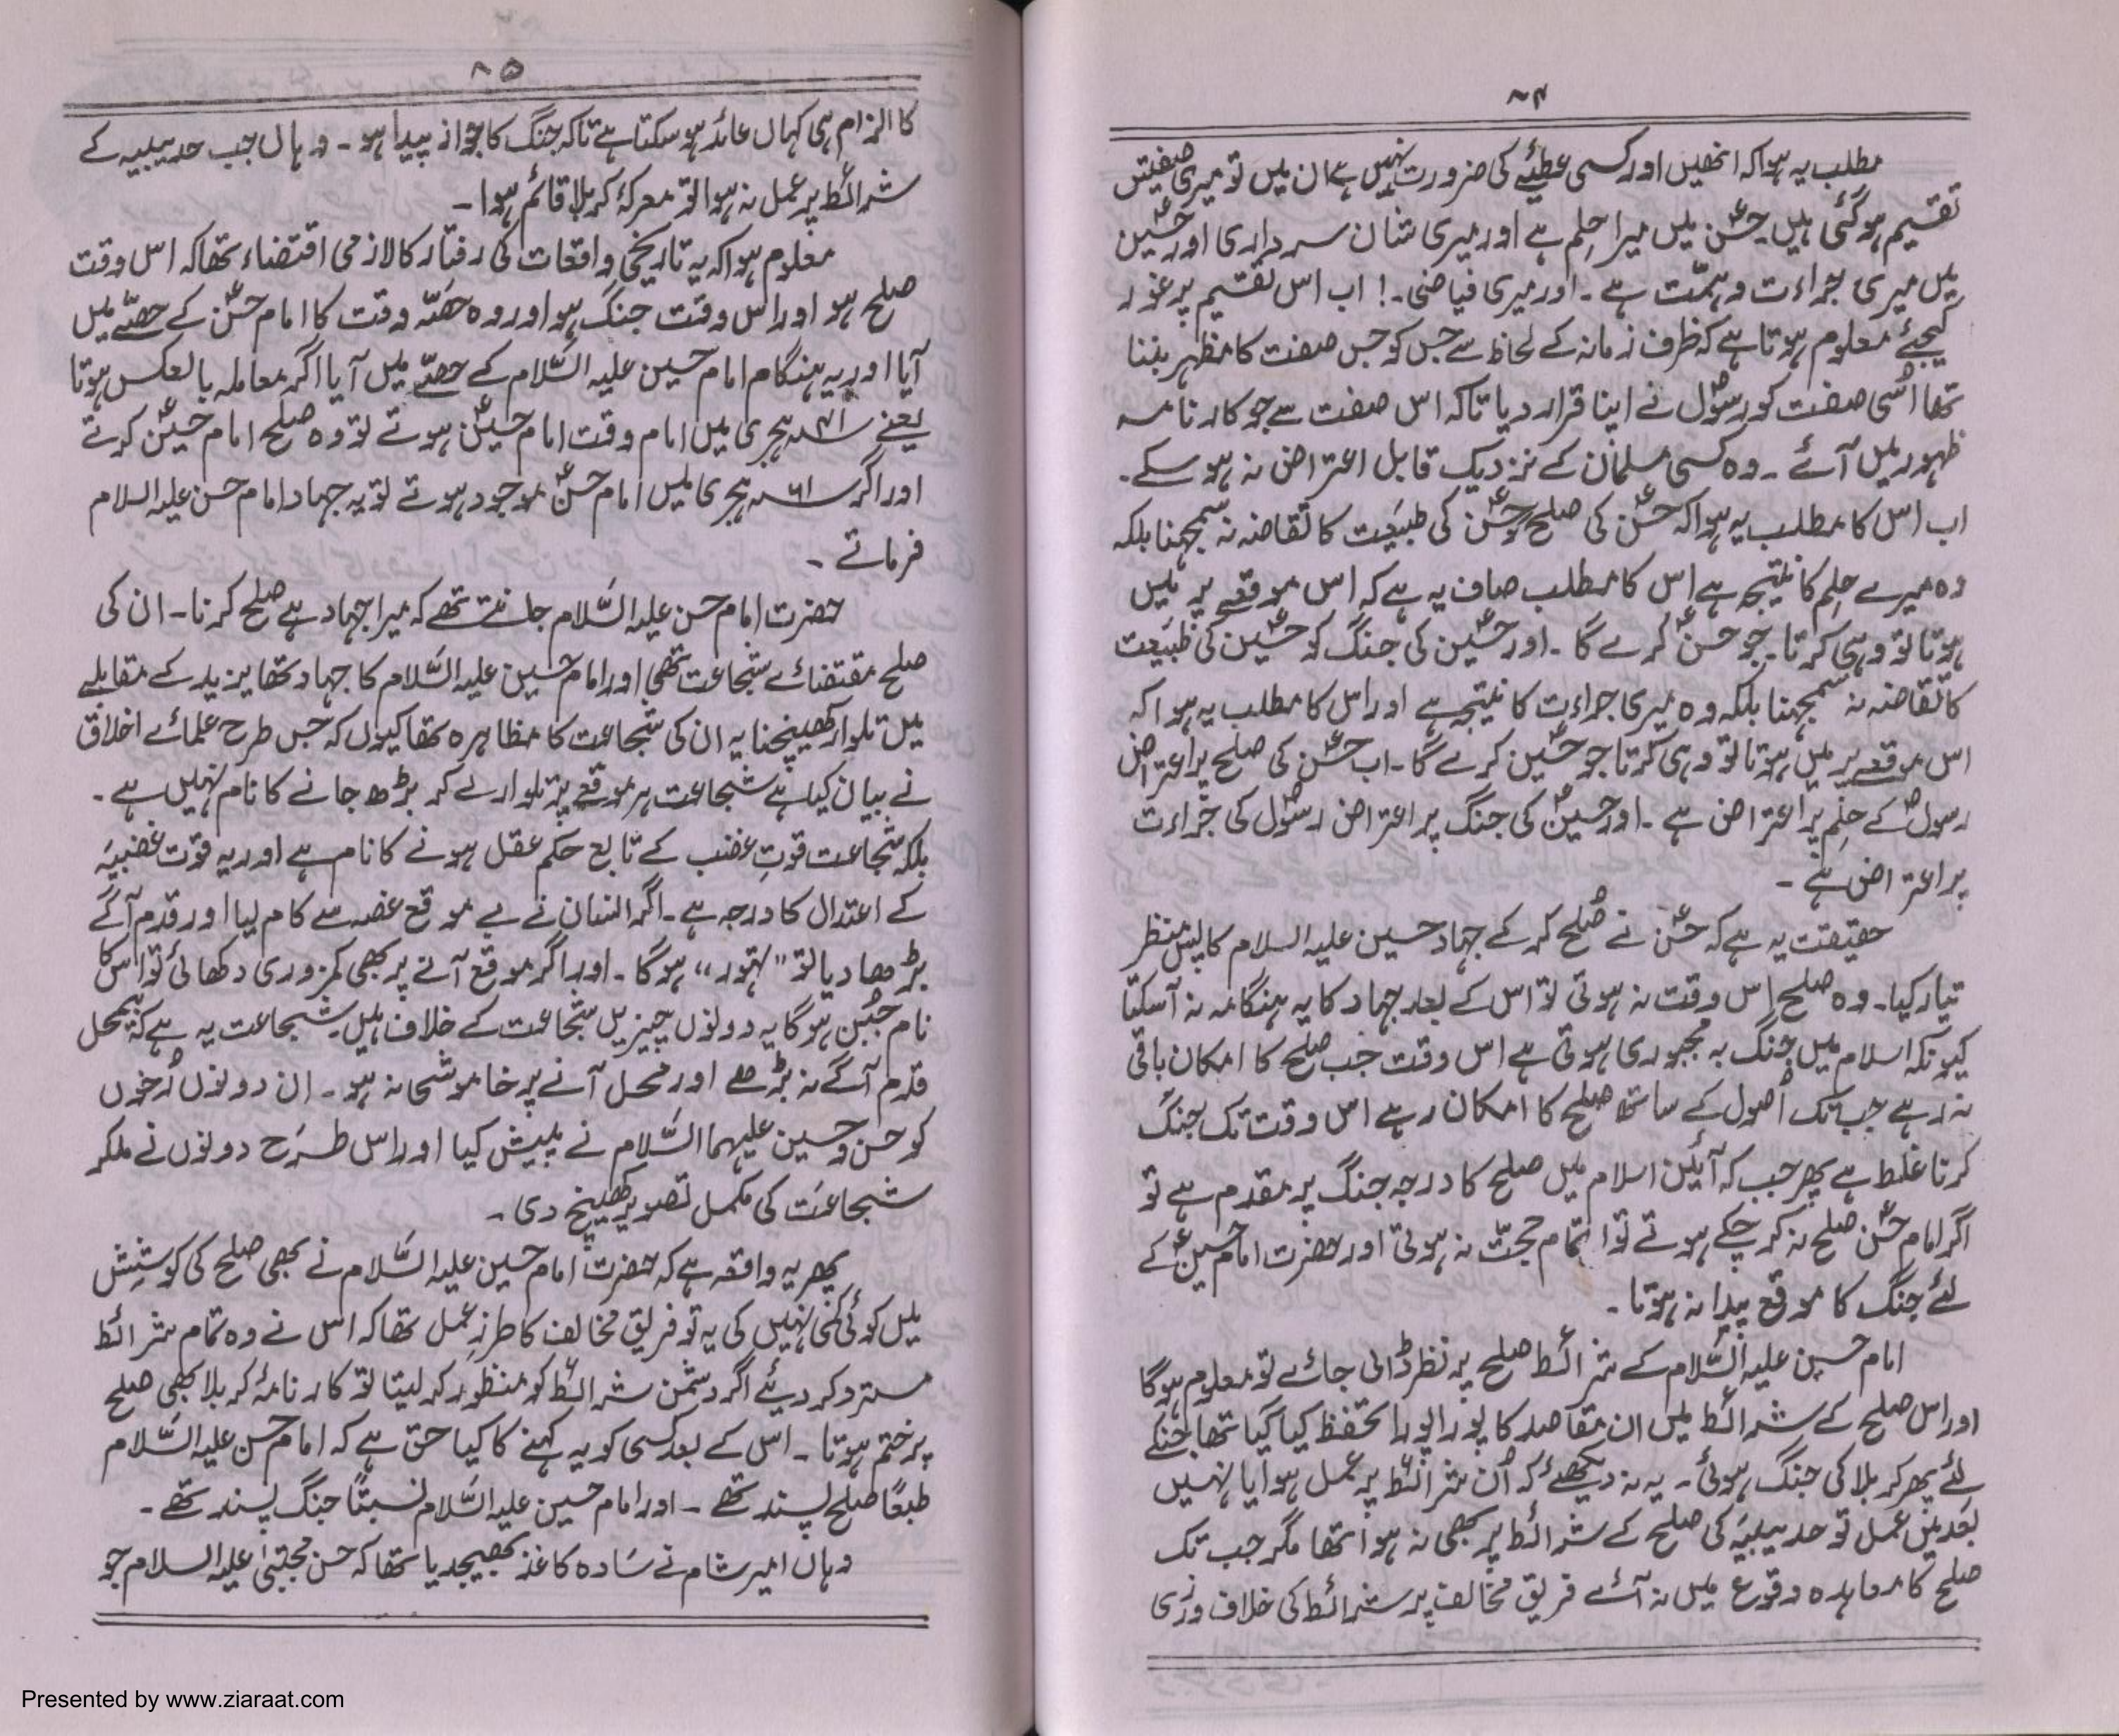 ۸۴
مطلب یہ ہوا کہ انھیں اور کسی عطیّے کی ضرورت نہیں ہے ان میں تو میری صفیتں
تقسیم ہو گئی ہیں۔ حسنؑ میں میرا حِلم ہے اور میری شان سرداری اور حسینؑ
میں میری جراءت و ہمّت ہے۔ اور میری فیاضی۔! اب اس تقسیم پر غور
کیجئے معلوم ہوتا ہے کہ ظرف زمانہ کے لحاظ سے جس کو جس صفت کا مظہر بننا
تھا اُسی صفت کو رسولؐ نے اپنا قرار دیا تاکہ اس صفت سے جو کارنامہ
ظہور میں آئے۔ وہ کسی مسلمان کے نزدیک قابل اعتراض نہ ہو سکے۔
اب اس کا مطلب یہ ہوا کہ حسنؑ کی صلح کو حسنؑ کی طبیعت کا تقاضہ نہ سمجھنا بلکہ
وہ میرے حِلم کا نتیجہ ہے اس کا مطلب صاف یہ ہے کہ اس موقعے پر میں
ہوتا تو وہی کرتا۔ جو حسنؑ کرے گا۔ اور حسینؑ کی جنگ کو حسینؑ کی طبیعت
کا تقاضہ نہ سمجھنا بلکہ وہ میری جراءت کا نتیجہ ہے اور اس کا مطلب یہ ہوا کہ
اس موقعے پر میں ہوتا تو وہی کرتا جو حسینؑ کرے گا۔ اب حسنؑ کی صلح پر اعتراض
رسولؐ کے حِلم پر اعتراض ہے۔ اور حسینؑ کی جنگ پر اعتراض رسولؐ کی جُراءت
پر اعتراض ہے۔
حقیقت یہ ہے کہ حسنؑ نے صُلح کر کے جہاد حسین علیہ السلام کا پس منظر
تیار کیا۔ وہ صلح اس وقت نہ ہوتی تو اس کے بعد جہاد کا یہ ہنگامہ نہ آسکتا
کیونکہ اسلام میں جنگ بہ مجبوری ہوتی ہے اس وقت جب صلح کا امکان باقی
نہ رہے جب تک اُصول کے ساتھ صلح کا امکان رہے اس وقت تک جنگ
کرنا غلط ہے پھر جب کہ آئین اسلام میں صلح کا درجہ جنگ پر مقدم ہے تو
اگر امام حسنؑ صلح نہ کر چکے ہوتے تو اتمام حجّت نہ ہوتی اور حضرت امام حسینؑ کے
لئے جنگ کا موقع پیدا نہ ہوتا۔
امام حسین علیہ السَّلام کے شرائط صلح پر نظر ڈالی جائے تو معلوم ہوگا
اور اس صلح کے شرائط میں ان مقاصد کا پورا پورا تحفظ کیا گیا تھا جنکے
لئے پھر کربلا کی جنگ ہوئی۔ یہ نہ دیکھئے کہ اُن شرائط پر عمل ہوا یا نہیں
بعد میں عمل تو حدیبیہ کی صلح کے شرائط پر بھی نہ ہوا تھا مگر جب تک
صلح کا معاہدہ وقوع میں نہ آئے فریق مخالف پر شرائط کی خلاف ورزی
۸۵
کا الزام ہی کہاں عائد ہو سکتا ہے تاکہ جنگ کا جواز پیدا ہو۔ وہاں جب حدیبیہ کے
شرائط پر عمل نہ ہوا تو معرکۂ کربلا قائم ہوا۔
معلوم ہوا کہ یہ تاریخی واقعات کی رفتار کا لازمی اقتضاء تھا کہ اس وقت
صلح ہو اور اس وقت جنگ ہو اور وہ حصّہ وقت کا امام حسنؑ کے حصّے میں
آیا اور یہ ہنگام امام حسین علیہ السَّلام کے حصّے میں آیا اگر معاملہ بالعکس ہوتا
یعنے ۴۱ ہجری میں امام وقت امام حسینؑ ہوتے تو وہ صلح امام حسینؑ کرتے
اور اگر ۶۱ ہجری میں امام حسنؑ موجود ہوتے تو یہ جہاد امام حسن علیہ السلام
فرماتے۔
حضرت امام حسن علیہ السَّلام جانتے تھے کہ میرا جہاد ہے صلح کرنا۔ ان کی
صلح مقتضائے شجاعت تھی اور امام حسین علیہ السَّلام کا جہاد تھا یزید کے مقابلے
میں تلوار کھینچنا یہ ان کی شجاعت کا مظاہرہ تھا کیوں کہ جس طرح علمائے اخلاق
نے بیان کیا ہے شجاعت ہر موقعے پر تلوار لے کر بڑھ جانے کا نام نہیں ہے۔
بلکہ شجاعت قوتِ غضب کے تابع حکم عقل ہونے کا نام ہے اور یہ قوّت غضبیہ
کے اعتدال کا درجہ ہے۔ اگر انسان نے بے موقع غصہ سے کام لیا اور قدم آگے
بڑھا دیا تو "تہوّر" ہوگا۔ اور اگر موقع آنے پر بھی کمزوری دکھائی تو اس کا
نام جُبن ہوگا یہ دونوں چیزیں شجاعت کے خلاف ہیں۔ شجاعت یہ ہے کہ بے محل
قدم آگے نہ بڑھے اور محل آنے پر خاموشی نہ ہو۔ ان دونوں رُخوں
کو حسن و حسین علیہما السَّلام نے پیش کیا اور اس طرَح دونوں نے ملکر
شجاعت کی مکمل تصویر کھینچ دی۔
پھر یہ واقعہ ہے کہ حضرت امام حسین علیہ السَّلام نے بھی صلح کی کوشش
میں کوئی کمی نہیں کی یہ تو فریق مخالف کا طرزِ عمل تھا کہ اس نے وہ تمام شرائط
مسترد کر دیئے اگر دشمن شرائط کو منظور کر لیتا تو کارنامۂ کربلا بھی صلح
پر ختم ہوتا۔ اس کے بعد کسی کو یہ کہنے کا کیا حق ہے کہ امام حسن علیہ السَّلام
طبعًا صلح پسند تھے۔ اور امام حسین علیہ السَّلام نسبتًا جنگ پسند تھے۔
وہاں امیر شام نے سَادہ کاغذ بھیجدیا تھا کہ حسن مجتبیٰ علیہ السلام جو
Presented by www.ziaraat.com